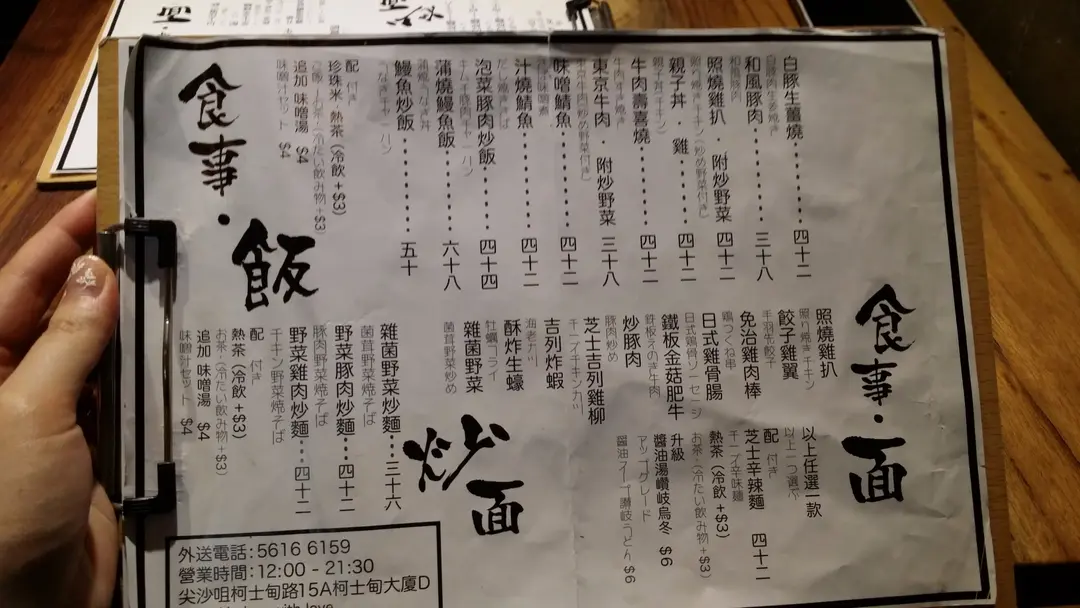 食事・飯
白豚生薑燒 四十二
和風豚肉 三十八
照燒雞扒・附炒野菜 四十二
親子丼・雞 四十二
牛肉壽喜燒 四十二
東京牛肉・附炒野菜 三十八
味噌鯖魚 四十二
汁燒鯖魚 四十二
泡菜豚肉炒飯 四十四
蒲燒鰻魚飯 六十八
鰻魚炒飯 五十
配 付き
珍珠米・熱茶（冷飲 +$3）
追加 味噌湯 $4
味噌汁セット $4
食事・面
照燒雞扒
照り燒きチキン
餃子雞翼
手羽先餃子
免治雞肉棒
鶏つくね串
日式雞骨腸
鐵板金菇肥牛
炒豚肉
豚肉炒め
芝士吉列雞柳
吉列炸蝦
酥炸生蠔
雜菌野菜
菌茸野菜炒め
以上任選一款
以上一つ選ぶ
配 付き
芝士辛辣麵 四十二
チーズ辛味麺
熱茶（冷飲 +$3）
お茶（冷たい飲み物+$3）
升級
アップグレード
醬油湯讚岐烏冬 $6
炒面
雜菌野菜炒麵 三十六
菌茸野菜燒そば
野菜豚肉炒麵 四十二
豚肉野菜燒そば
野菜雞肉炒麵 四十二
チキン野菜燒そば
配 付き
熱茶（冷飲 +$3）
お茶（冷たい飲み物+$3）
追加 味噌湯 $4
味噌汁セット $4
外送電話:5616 6159
營業時間:12:00 - 21:30
尖沙咀柯士甸路15A柯士甸大廈D
with love